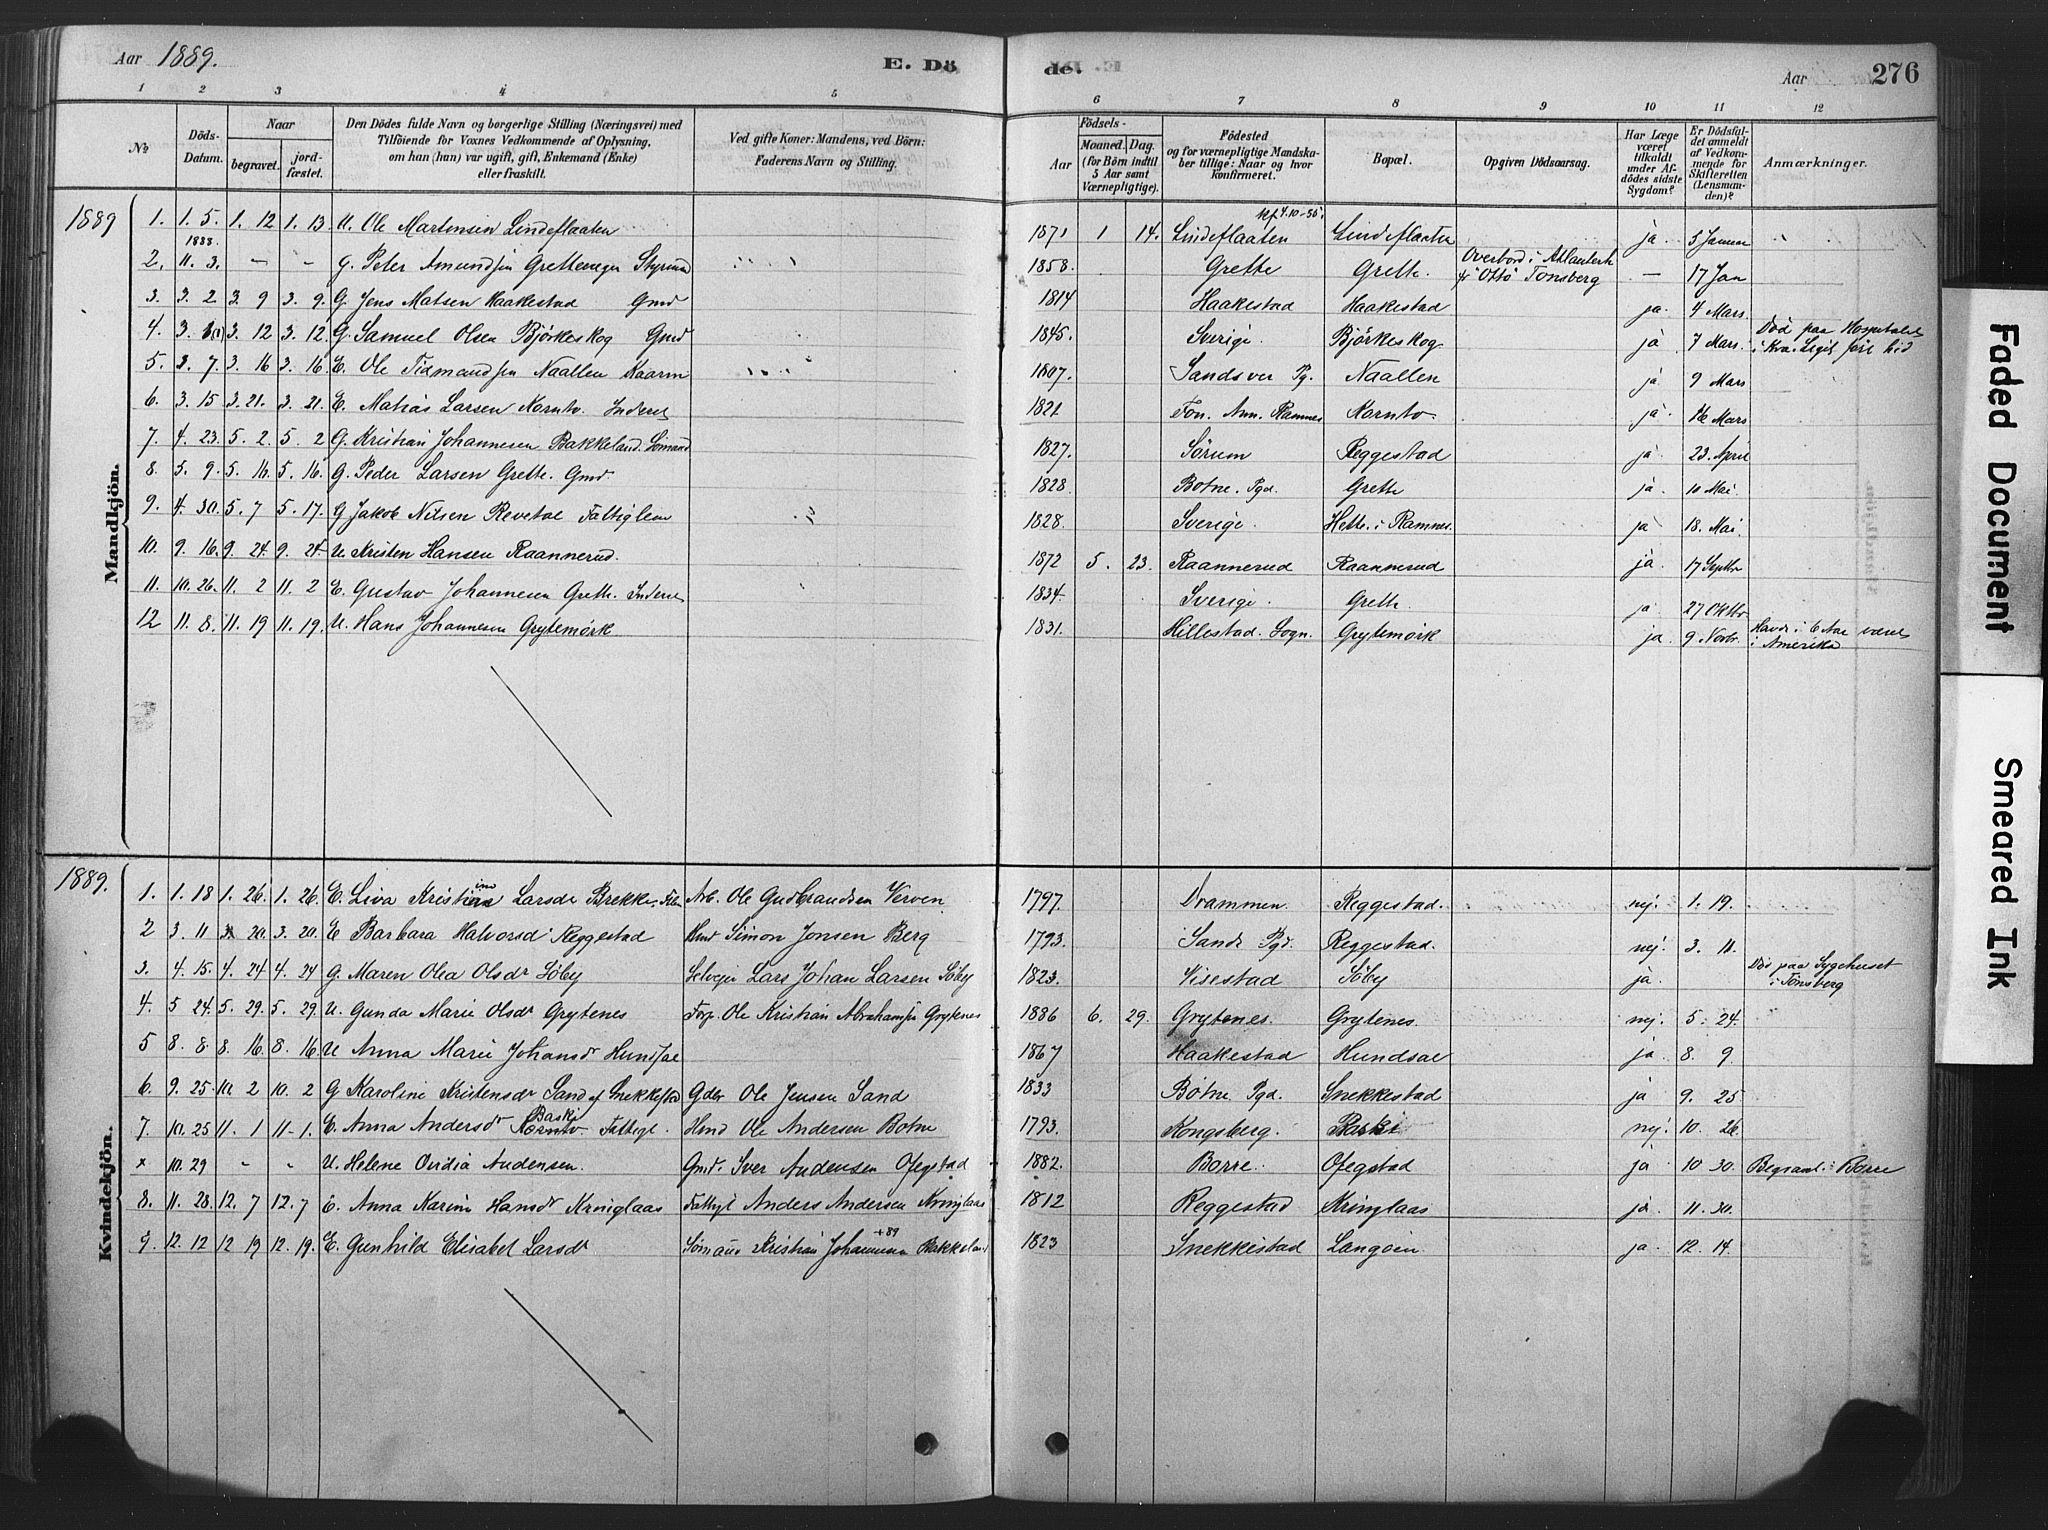 Aar 1889.
E. Dö
de.
Aar
276
1 2 3 4 5
6 7 8 9 10 11 12
No
Döds-Datum.
Naar
begravet.
jord-fæstet.
Den Dödes fulde Navn og borgerlige Stilling (Næringsvei) med
Tilföiende for Voxnes Vedkommende af Oplysning,
om han (hun) var ugift, gift, Enkemand (Enke)
eller fraskilt.
Ved gifte Koner: Mandens, ved Börn:
Faderens Navn og Stilling.
Födsels-
Aar
Maaned.
Dag.
(for Börn indtil
5 Aar samt
Værnepligtige).
Födested
og for værnepligtige Mandska-
ber tillige: Naar og hvor
konfirmeret.
Bopæl.
Opgiven Dödsaarsag.
Har Læge
været
tilkaldt
under Af-
dödes sidste
Sygdom?
Er Dödsfal-
det anmeldt
af Vedkom-
mende for
Skifteretten
(Lensman-
den)?
Anmærkninger.
Mandkjön.
1889 1. 1. 5. 1. 12 1. 13. U. Ole Martensen Lindeflaaten 1871 1 14. Lindeflaaten Lindeflaaten ja 5 Januar
2. 11. 3. — — g. Peter Amundsen Gretteneger Styrmd 1858. Grette Grette. Overbord i Atlanterh — 17 Jan
Otto Tønsberg
3. 3. 2 3. 9 3. 9. G. Jens Matsen Haakestad Gmd 1814 Haakestad Haakestad ja. 4 Mars.
4. 3. 3. 12 3. 12. G. Samuel Olsen Bjørkeskog Gmd 1845. Sverige. Bjørkeskog ja 7 Mars. Död paa Hospitalet
5. 3. 7. 3. 16 3. 16. E. Ole Tidmandsen Naallen Kaarm 1807. Sandsver Pg. Naallen ja 9 Mars
6. 3. 15 3. 21. 3. 21. E. Matias Larsen Kornto. Inderst 1821 Ramnes Kornto. ja 16 Mars
7. 4. 23. 5. 2. 5. 2 G. Kristian Johannesen Bakkeland. Sömand 1827. Sörum Reggestad ja 23. April
8. 5. 9. 5. 16. 5. 16. G. Peder Larsen Grette. Gmd. 1828. Botne. Pgd. Grette ja. 10 Mai.
9. 4. 30. 5. 7 5. 17. G Jakob Nilsen Revetal Fattiglem 1828. Sverige. Hette. i Ramnes. ja 18. Mai.
10. 9. 16. 9. 24. 9. 24. U. Kristen Hansen Raannerud. 1872 5. 23. Raannerud Raannerud ja 17 Septbr
11. 10. 26. 11. 2 11. 2 E. Gustav Johannesen Grette. Inderst 1834. Sverige. Grette. ja 27 Oktbr
12 11. 8. 11. 19 11. 19. U. Hans Johannesen Grytemörk 1831. Hillestad. Sogn. Grytemörk ja. 9 Novbr. Havde i 6 Aar været
i Amerika
Kvindekjön.
1889. 1. 1. 18 1. 26. 1. 26. E. Liva Kristine Larsdr Brekke. Arb. Ole Gudbrandsen Verven 1797. Drammen. Reggestad. nej. 1. 19.
2 3. 11 20. 3. 20. E Barbara Halvorsd Reggestad Hmd Simon Jonsen Berg 1793. Sande Pgd. Reggestad. nej. 3. 11.
3. 4. 15. 4. 24 4. 24 g. Maren Olea Olsdr Söby Selvejer Lars Johan Larsen Söby 1823. Visestad Söby ja. Död paa Sygehuset
i Tönsberg
4. 5 24. 5. 29. 5. 29 U. Gunda Marie Olsdr Grytenes Forp. Ole Kristian Abrahamsen Grytenes 1886 6. 29. Grytenes. Grytenes. nej. 5. 24.
5 8. 8. 8. 16. 8. 16 U Anna Marie Johansdr Hundsal 1867 Haakestad Hundsal ja. 8. 9.
6. 9. 25. 10. 2 10. 2 G Karoline Kristensdr Sand af Snekkestad Gder Ole Jensen Sand 1833 Botne Pgd. Snekkestad ja 9. 25
7. 10. 25 11. 1 11. 1. E. Anna Andersdr Baski Fattigl. Hmd Ole Andersen Botne 1793. Kongsberg. Baski nej. 10. 26.
x 10. 29 " " U. Helene Ovidia Andensen. Gmd. Iver Andensen Ofegstad 1882. Borre. Ofegstad ja 10 30. Begravet i Borre
8. 11. 28. 12. 7 12. 7 E. Anna Karine Hansdr Kringlaas Fattigl Anders Andersen Kringlaas 1812 Reggestad Kringlaas ja. 11. 30.
9. 12. 12 12 19 12. 19. E. Gunhild Elisabet Larsdr Sömand Kristian Johannesen +89 Bakkeland 1823 Snekkestad Langöen. ja. 12. 14.
Faded Document
Smeared Ink